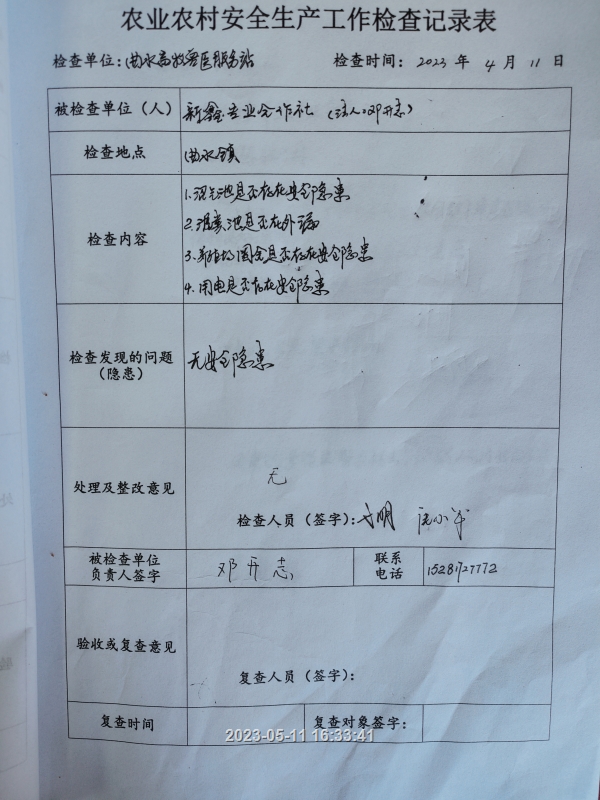 农业农村安全生产工作检查记录表
检查单位:曲水畜牧兽医服务站 检查时间: 2023 年 4 月 11 日
被检查单位（人） 新鑫专业合作社（法人:邓开志）
检查地点 曲水镇
检查内容
1.沼气池是否存在安全隐患
2.堆粪池是否在外漏
3.养殖场圈舍是否存在安全隐患
4.用电是否存在安全隐患
检查发现的问题
（隐患）
无安全隐患
处理及整改意见
无
检查人员（签字）:
被检查单位
负责人签字
邓开志
联系
电话
验收或复查意见
复查人员（签字）:
复查时间
复查对象签字:
2023-05-11 16:33:41